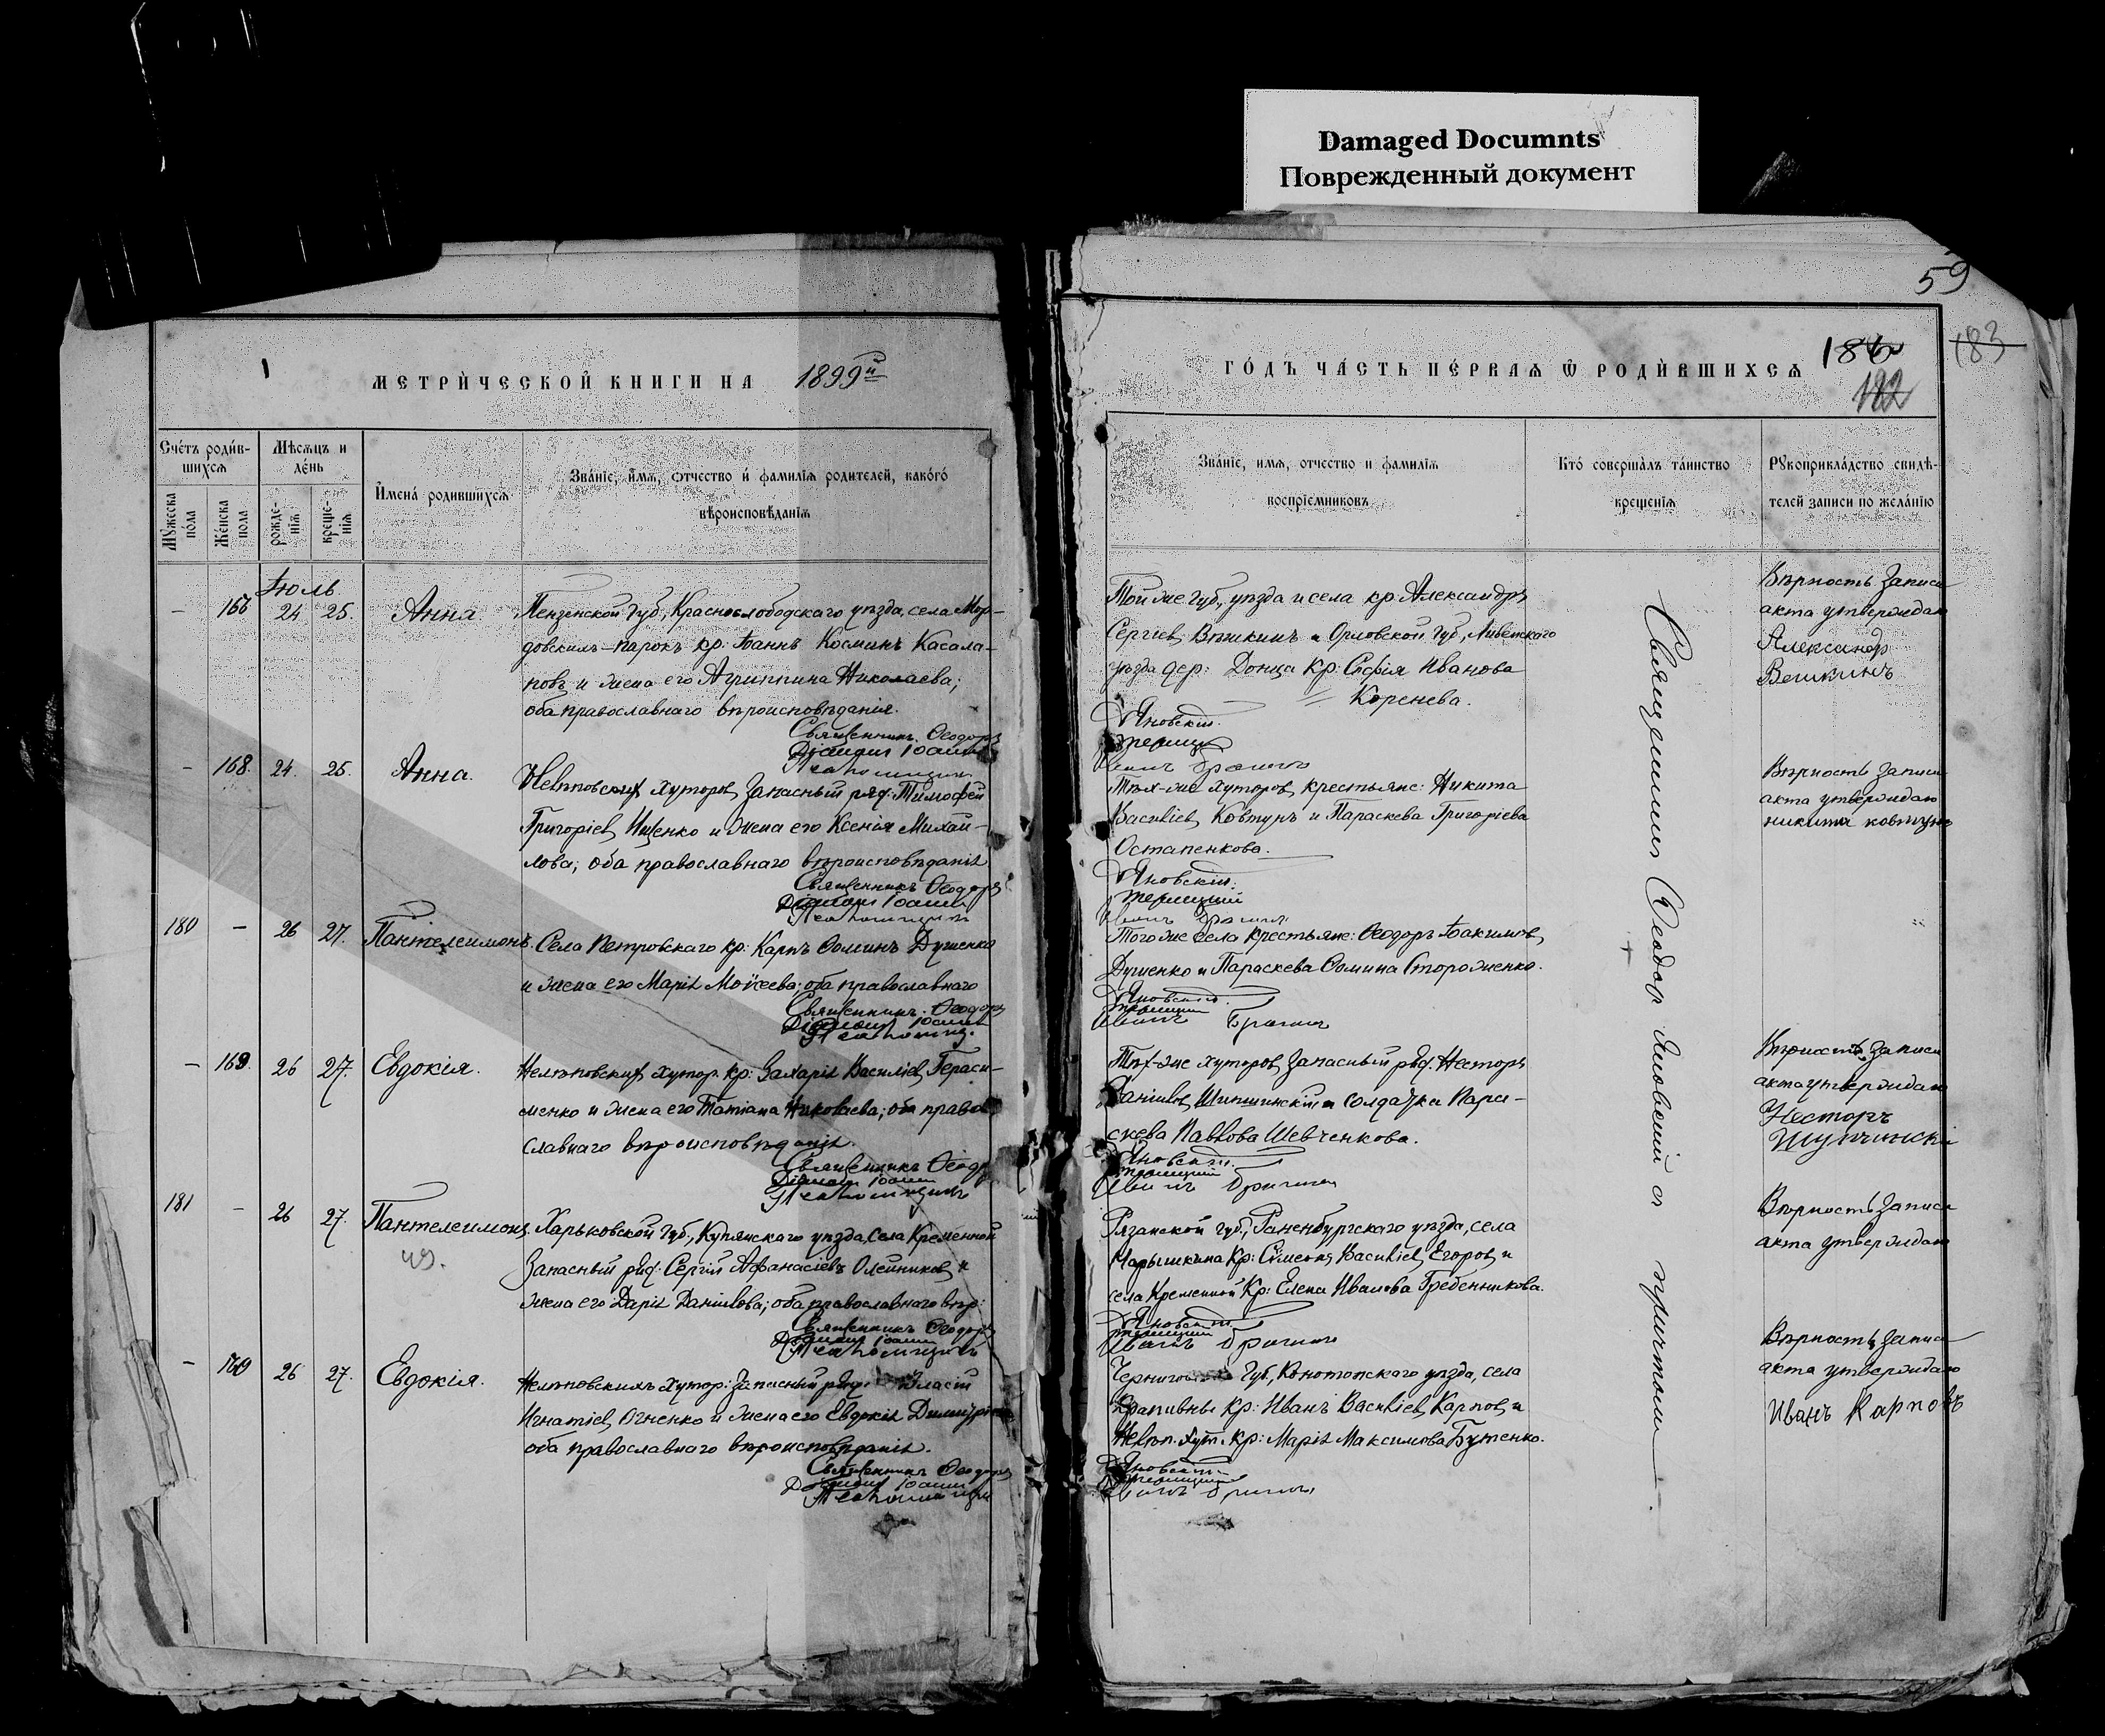 Damaged Documnts
Поврежденный документ
59
МЕТРИ́ЧЕСКОЙ КНИГИ НА 1899й
ГО́ДЪ ЧА́СТЬ ПЕ́РВАѦ Ѿ РОДИ́ВШИХСѦ
182
183
Сче́тъ роди́в-
шихсѧ
Мѣсѧцъ и
де́нь
Мꙋжеска
по́ла
Же́нска
пола
рожде-
нїѧ
креще-
нїѧ
И҆мена́ родившихсѧ
Зва́нїе, и҆́мѧ, ѻтчество и҆ фамилїѧ родителей, како́гѡ
вѣроисповѣ́данїѧ
Зва́нїе, имѧ, отчество и фамилїѧ
воспрїемниковъ
Кто̀ соверша́лъ та́инство
крещенїѧ
Рꙋкоприкла́дство свидѣ-
телей записи по жела́нїю
Іюль
- 24 25. Анна.
Пензенской губ., Краснослободскаго уѣзда, села Мор-
довскихъ-парокъ кр: Іоаннъ Косминъ Касала-
повъ и жена его Агриппина Николаева;
оба православнаго вѣроисповѣданія.
Священникъ Ѳеодоръ
Діаконъ Іоаннъ
Той же губ., уѣзда и села кр. Александръ
Сергіевъ Вѣшкинъ и Орловской губ., Ливенскаго
уѣзда дер: Донца кр: Софія Иванова
Коренева.
Яновскій.
Вѣрность записи
акта утверждаю
Александр
Вешкинъ
- 168. 24. 25. Анна.
Нелѣповскихъ хуторовъ, запасный ряд: Тимофей
Григоріевъ Ищенко и жена его Ксенія Михай-
лова; оба православнаго вѣроисповѣданія
Священникъ Ѳеодоръ
Діаконъ Іоаннъ
Тѣх-же хуторовъ крестьяне: Никита
Василіев, Ковтунъ и Параскева Григоріева
Остапенкова.
Яновскій.
Вѣрность записи
акта утверждаю
никита ковтунъ
180 - 26 27. Пантелеимонъ.
Села Петровскаго кр: Карпъ Ѳоминъ Душенко
и жена его Марія Моѵсеева; оба православнаго
Священникъ Ѳеодоръ
Діаконъ Іоаннъ
Того же села крестьяне: Ѳеодоръ Іоакимов,
Душенко и Параскева Ѳомина Стороженко.
Яновскій.
Иванъ
- 169. 26 27. Евдокія.
Нелѣповских хутор. кр: Захарія Василіев, Гераси-
менко и жена его Татіана Николаева; оба право-
славнаго вѣроисповѣданія.
Священникъ Ѳеодоръ
Діаконъ Іоаннъ
Тѣх-же хуторовъ, запасный ряд. Несторъ
Даніилов, и солдатка Пара-
скева Павлова Шевченкова.
Яновскій.
Иванъ
Вѣрность записи
акта утверждаю
Несторъ
181 - 26 27. Пантелеимонъ.
Харьковской губ., Купянскаго уѣзда, села Кременной
запасный ряд: Сергій Афанасіевъ Олейников, и
жена его Дарія Даніилова; оба православнаго вѣр:
Священникъ Ѳеодоръ
Діаконъ Іоаннъ
Рязанской губ., Раненбургскаго уѣзда, села
Нарышкина кр: Сѵмеонъ Василіев, Егоров, и
села Кременной кр: Елена Иванова Гребенникова.
Яновскій
Иванъ
Вѣрность записи
акта утверждаю
- 26 27. Евдокія.
Нелѣповскихъ хутор: запасный ряд: Власій
Игнатіев, и жена его Евдокія Димитріева
оба православнаго вѣроисповѣданія.
Священникъ Ѳеодоръ
Діаконъ Іоаннъ
губ., Конотопскаго уѣзда, села
Крапивны кр: Иванъ Василіев, Карпов, и
Нелѣп. хут. кр: Марія Максимова Бутенко.
Яновскій
Вѣрность записи
акта утверждаю
Иванъ Карповъ
Священникъ Ѳеодоръ Яновскій съ причтомъ